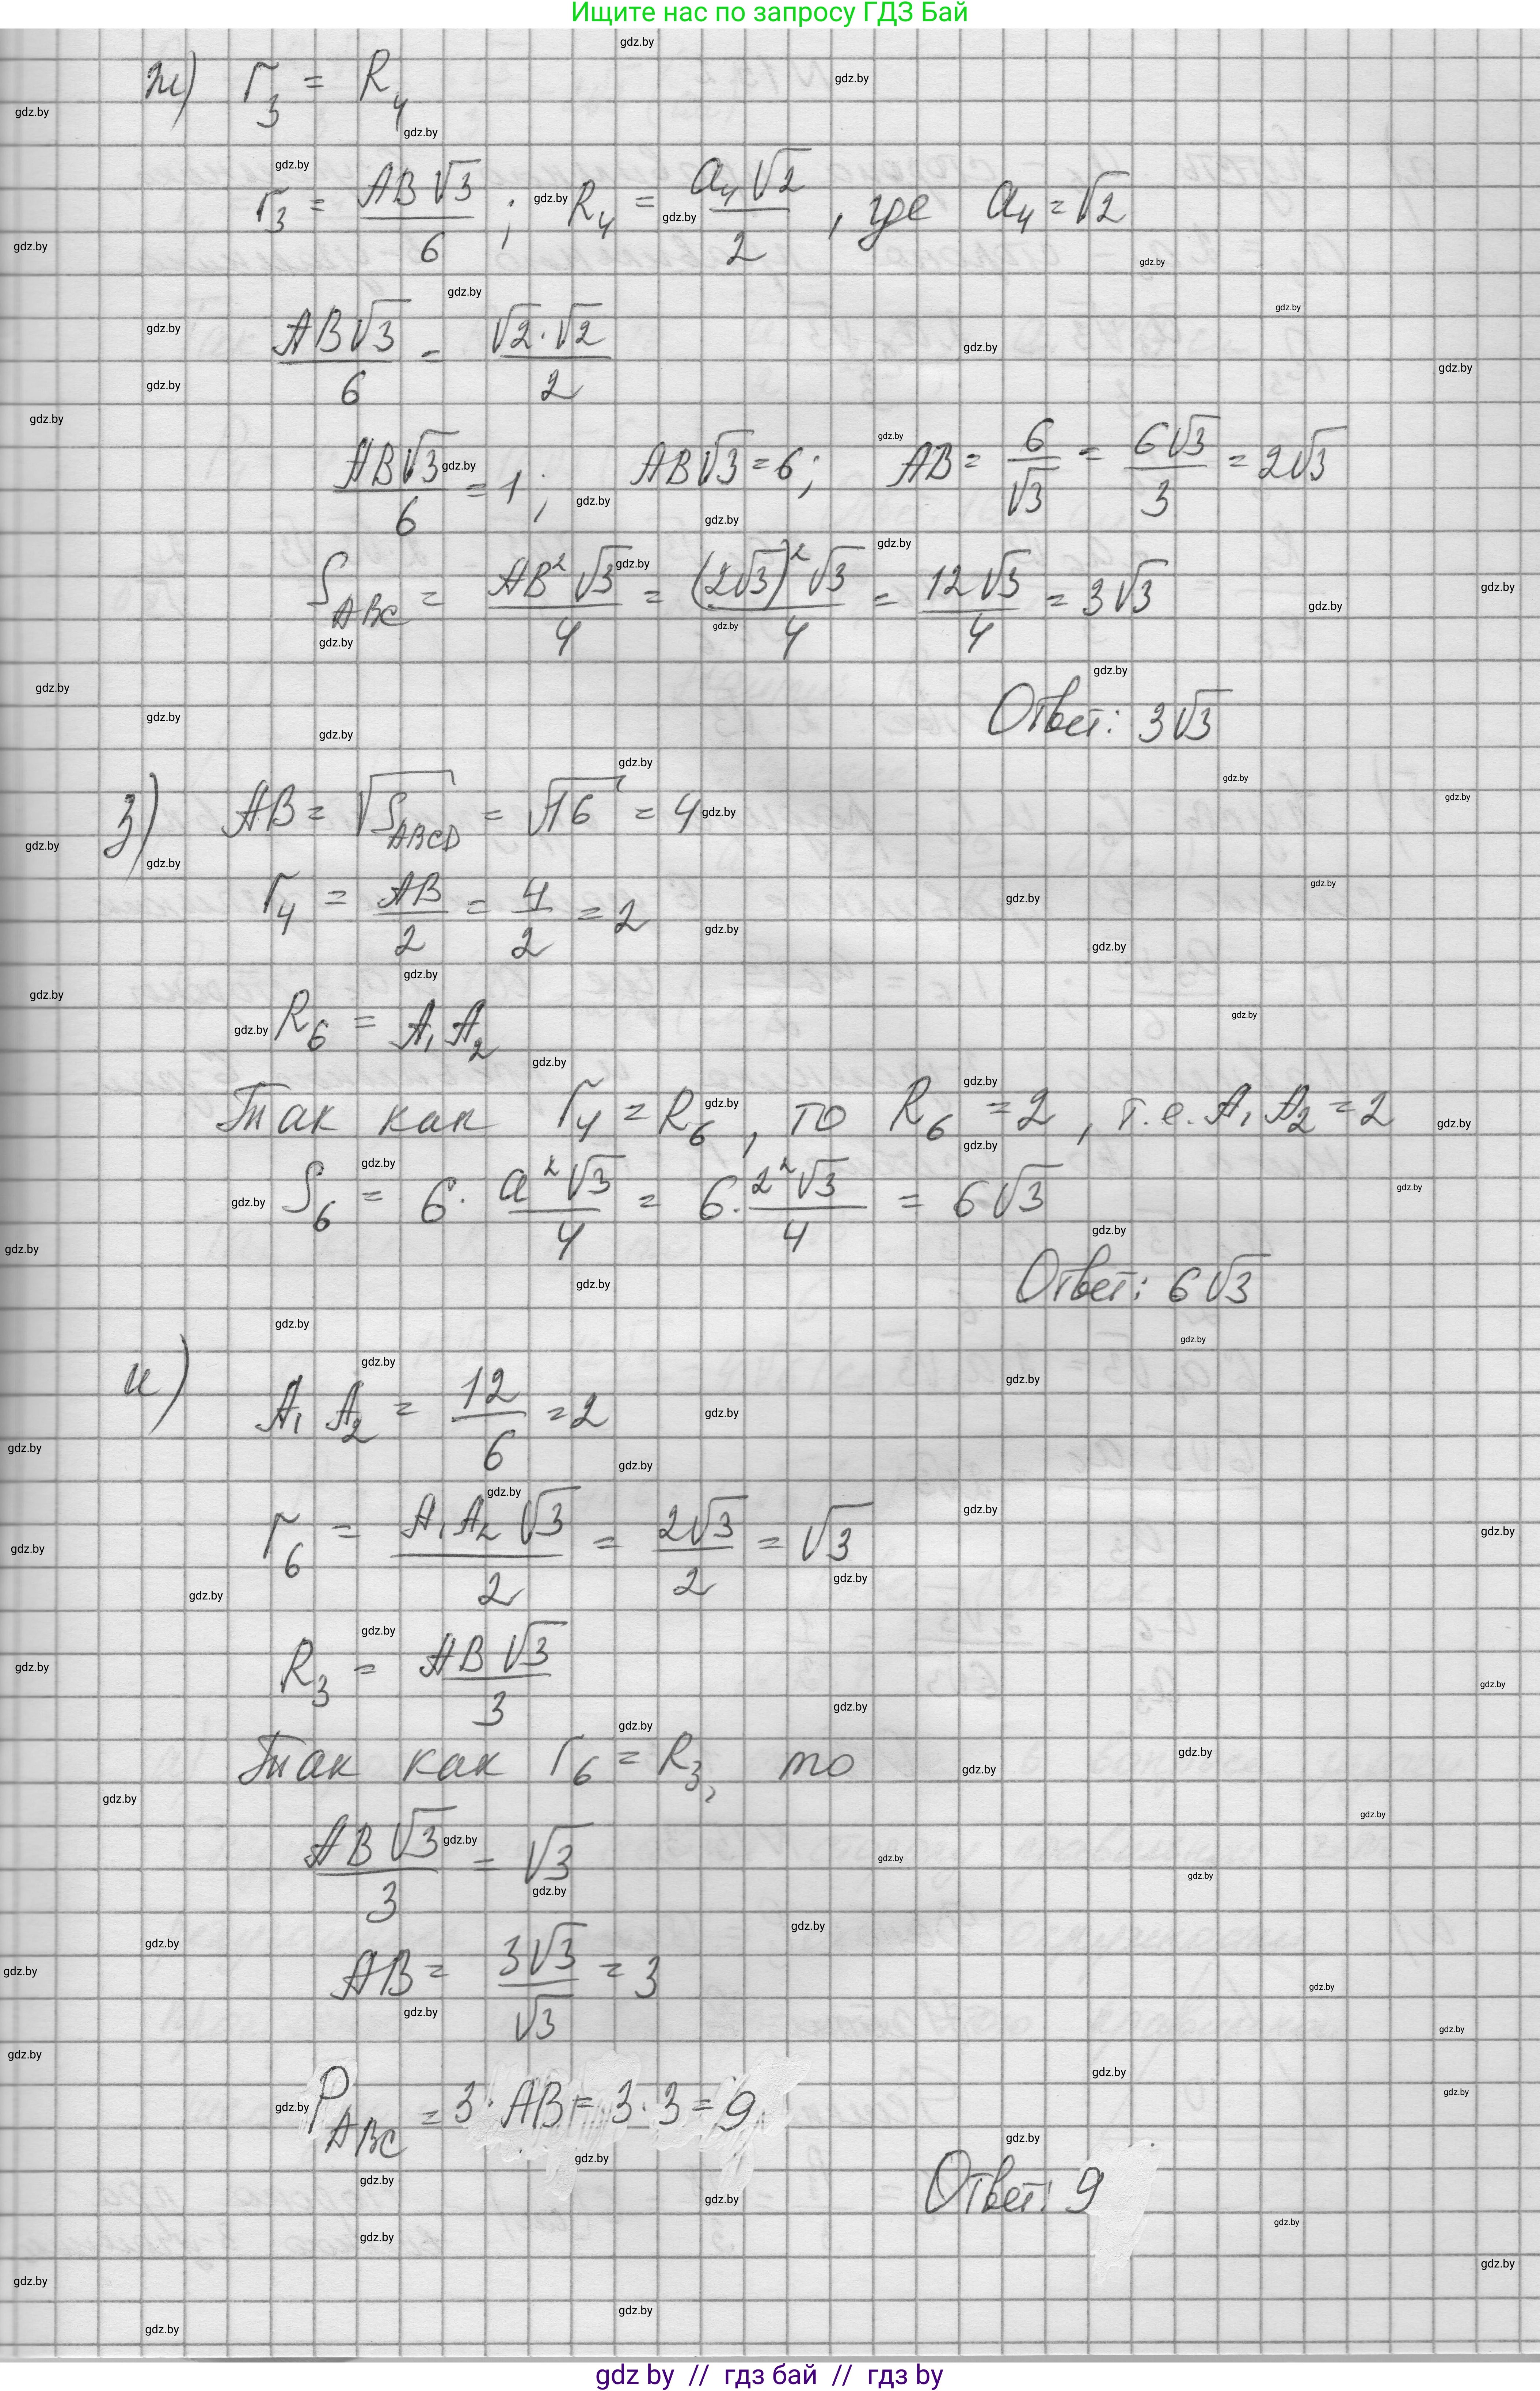 Ищите нас по запросу ГДЗ Бай
ж) r₃ = R₄
r₃ = AB√3/6 ; R₄ = a₄√2/2 , где a₄ = √2
AB√3/6 = √2·√2/2
AB√3/6 = 1 ; AB√3 = 6 ; AB = 6/√3 = 6√3/3 = 2√3
S_ABC = AB²√3/4 = (2√3)²√3/4 = 12√3/4 = 3√3
Ответ: 3√3
з) AB = √S_ABCD = √16 = 4
r₄ = AB/2 = 4/2 = 2
R₆ = A₁A₂
Так как r₄ = R₆ , то R₆ = 2 , т.е. A₁A₂ = 2
S₆ = 6· a²√3/4 = 6· 2²√3/4 = 6√3
Ответ: 6√3
и) A₁A₂ = 12/6 = 2
r₆ = A₁A₂√3/2 = 2√3/2 = √3
R₃ = AB√3/3
Так как r₆ = R₃, то
AB√3/3 = √3
AB = 3√3/√3 = 3
P_ABC = 3·AB = 3·3 = 9
Ответ: 9
gdz by // гдз бай // гдз by